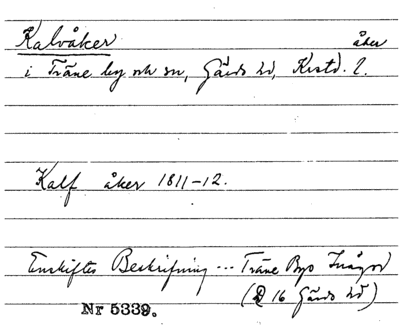 Kalvåker åker
i Träne by och sn, Gärds hd, Krstd. l.
Kalf åker 1811-12.
Enskiftes Beskrifning ... Träne Bys Inägor
(D 16 Gärds hd)
Nr 5339.